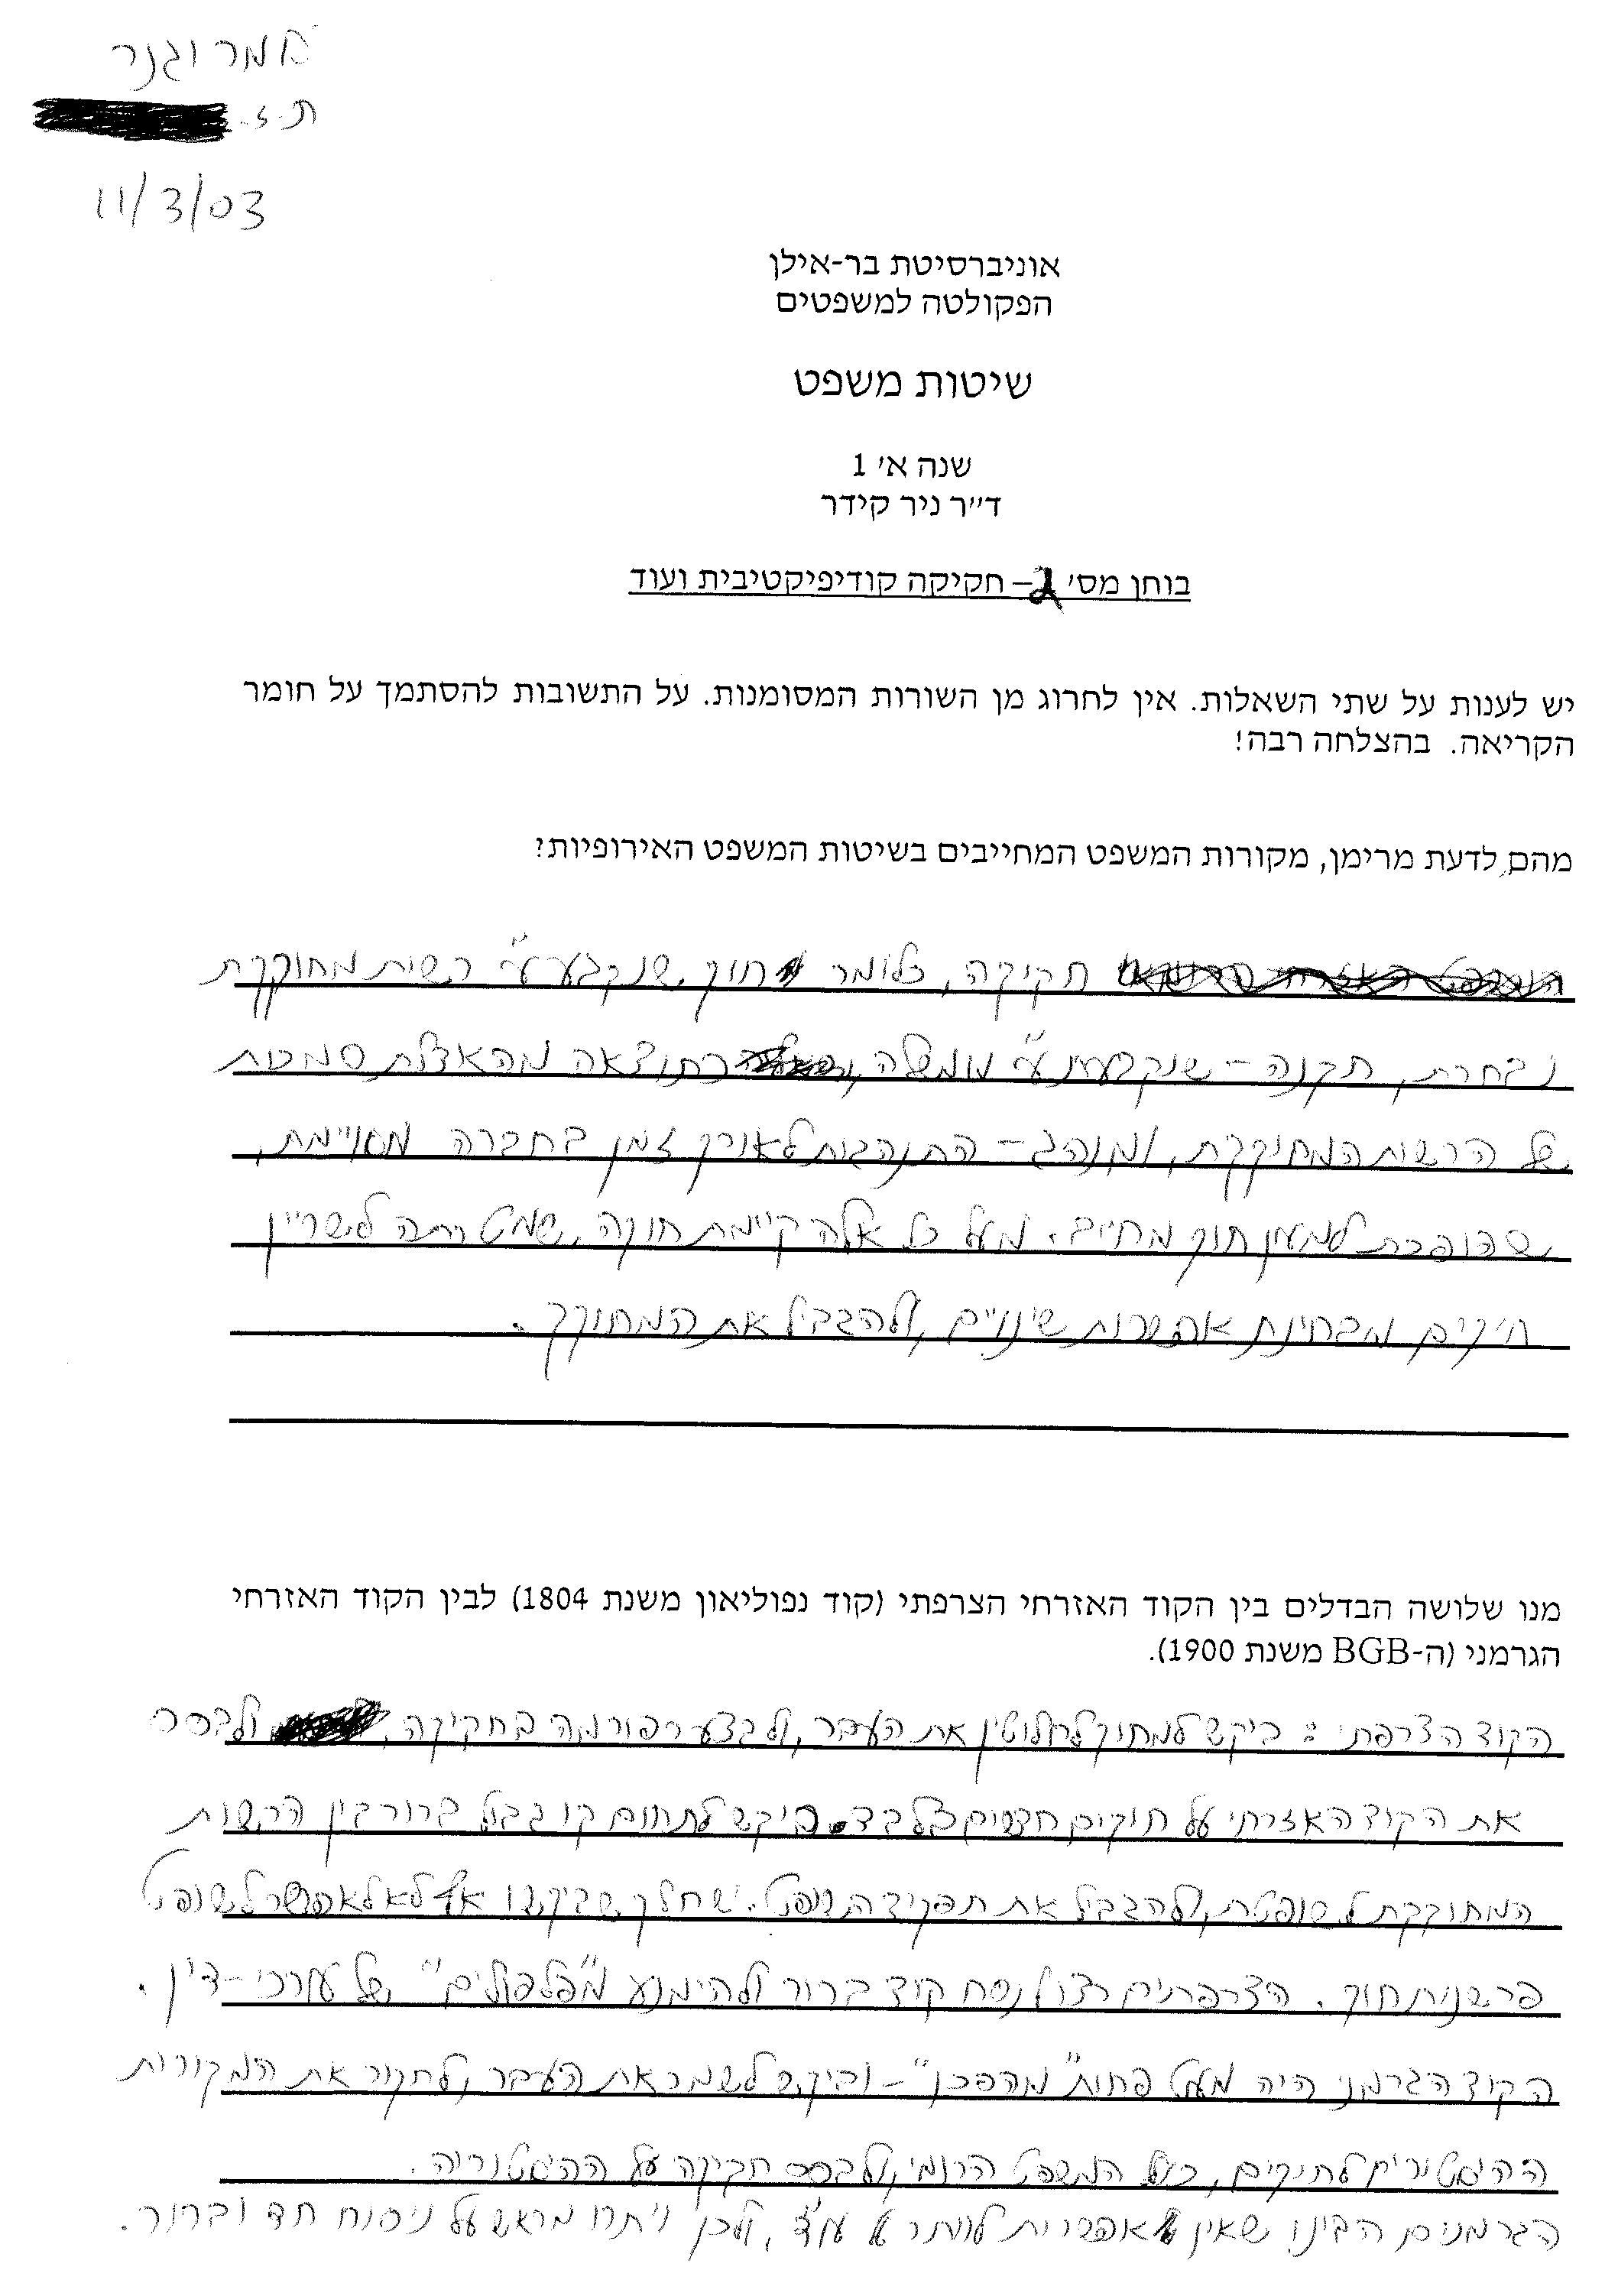 תמר וגנר
ת.ז.
11/3/03
אוניברסיטת בר-אילן
הפקולטה למשפטים
שיטות משפט
שנה א׳ 1
ד״ר ניר קידר
בוחן מס׳ 2 – חקיקה קודיפיקטיבית ועוד
יש לענות על שתי השאלות. אין לחרוג מן השורות המסומנות. על התשובות להסתמך על חומר
הקריאה. בהצלחה רבה!
מהם, לדעת מרימן, מקורות המשפט המחייבים בשיטות המשפט האירופיות?
חקיקה, כלומר חוק שנקבע ע״י רשות מחוקקת
נבחרת, תקנה – שנקבעת ע״י ממשלה, כתוצאה מהאצלת סמכות
של הרשות המחוקקת, ומנהג – התנהגות לאורך זמן בחברה מסויימת,
שהופכת למעין חוק מחייב. מעל כל אלה קיימת חוקה, שמטרתה לשריין
חוקים מבחינת אפשרות שינויים, ולהגביל את המחוקק.
מנו שלושה הבדלים בין הקוד האזרחי הצרפתי (קוד נפוליאון משנת 1804) לבין הקוד האזרחי
הגרמני (ה-BGB משנת 1900).
הקוד הצרפתי: ביקש למחוק לחלוטין את העבר, ולבצע רפורמה בחקיקה, ולבסס
את הקוד האזרחי על חוקים חדשים בלבד. ביקש לתחום קו גבול ברור בין הרשות
המחוקקת לשופטת, ולהגביל את תפקיד השופט. שחלק שביקשו אף לא לאפשר לשופט
פרשנות חוק. הצרפתים רצו לנסח קוד ברור ולהימנע מ"פלפולים" של עורכי-דין.
הקוד הגרמני היה מעט פחות "מהפכן" – וביקש לשמר את העבר, לחקור את המקורות
ההיסטוריים לחוקים, כולל המשפט הרומי, ולבסס חקיקה על ההיסטוריה.
הגרמנים הבינו שאין אפשרות לוותר על עו״ד, ולכן ויתרו מראש על ניסוח חד וברור.